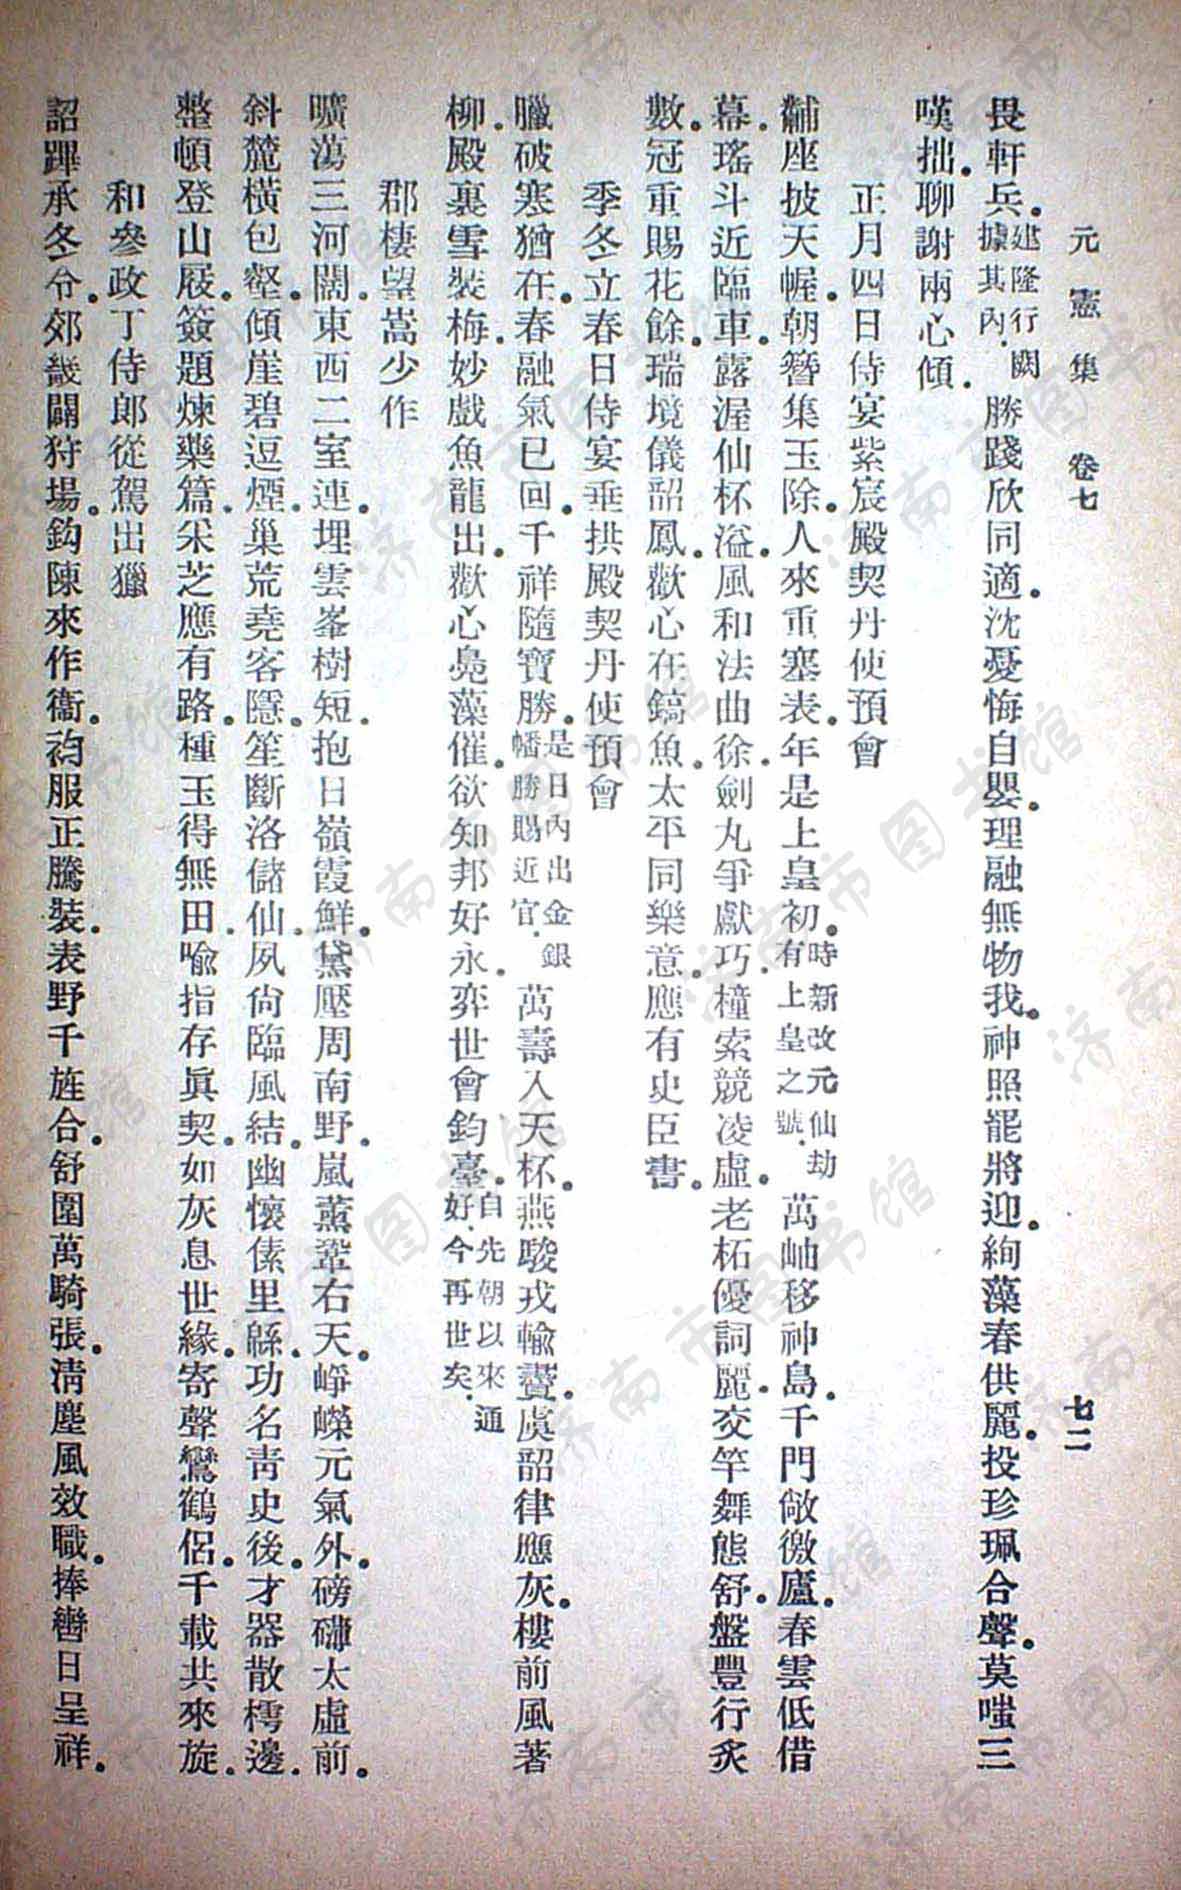 元憲集　卷七　七二
畏軒兵。建隆行闕據其內。勝踐欣同適。沈憂悔自嬰。理融無物我。神照罷將迎。絢藻春供麗。投珍珮合聲。莫嗤三
嘆拙。聊謝兩心傾。
正月四日侍宴紫宸殿契丹使預會
黼座披天幄。朝簪集玉除。人來重塞表。年是上皇初。時新改元仙劫有上皇之號。萬岫移神島。千門敞徼廬。春雲低借
幕。瑤斗近臨車。露渥仙杯溢。風和法曲徐。劍丸爭獻巧。橦索競凌虛。老柘優詞麗。交竿舞態舒。盤豐行炙
數。冠重賜花餘。瑞境儀韶鳳。歡心在鎬魚。太平同樂意。應有史臣書。
季冬立春日侍宴垂拱殿契丹使預會
臘破寒猶在。春融氣已回。千祥隨寶勝。是日內出金銀幡勝賜近官。萬壽入天杯。燕駿戎輸賮。虞韶律應灰。樓前風著
柳。殿裏雪裝梅。妙戲魚龍出。歡心鳧藻催。欲知邦好永。弈世會鈞臺。自先朝以來通好。今再世矣。
郡樓望嵩少作
曠蕩三河闊。東西二室連。埋雲峯樹短。抱日嶺霞鮮。黛壓周南野。嵐薰鞏右天。崢嶸元氣外。磅礴太虛前。
斜麓橫包壑。傾崖碧逗煙。巢荒堯客隱。笙斷洛儲仙。夙尙臨風結。幽懷傃里緜。功名靑史後。才器散樗邊。
整頓登山屐。簽題煉藥篇。采芝應有路。種玉得無田。喩指存眞契。如灰息世緣。寄聲鸞鶴侶。千載共來旋。
和參政丁侍郎從駕出獵
詔蹕承冬令。郊畿闢狩場。鈎陳來作衞。袀服正騰裝。表野千旌合。舒圍萬騎張。淸塵風效職。捧轡日呈祥。